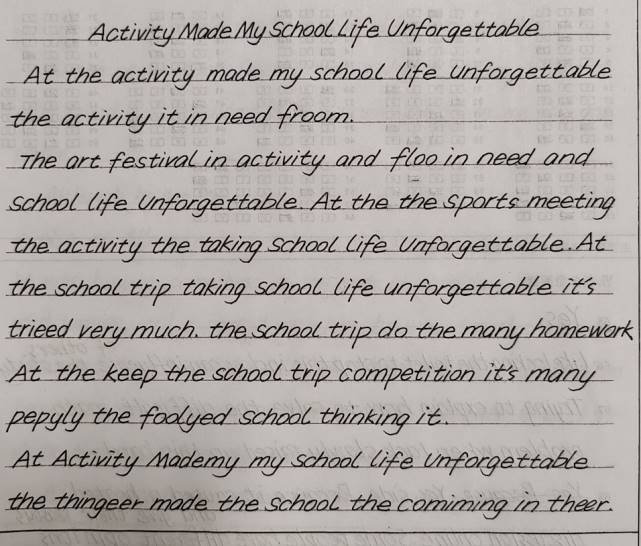 Activity Made My School Life Unforgettable
At the activity made my school life unforgettable
the activity it in need froom.
The art festival in activity and floo in need and
school life Unforgettable. At the the sports meeting
the activity the taking school life Unforgettable. At
the school trip taking school life unforgettable it's
trieed very much. the school trip do the many homework
At the keep the school trip competition it's many
pepyly the foolyed school thinking it.
At Activity Mademy my school life Unforgettable
the thingeer made the school the comiming in theer.